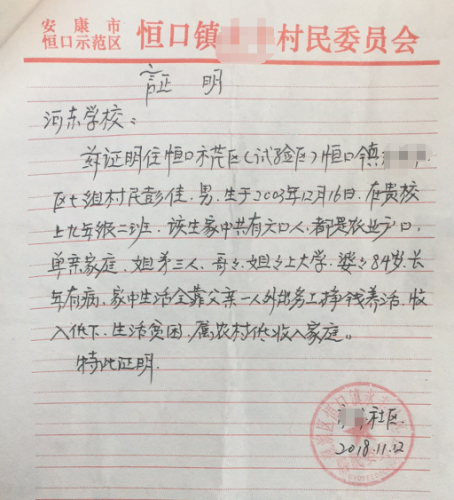 安康市
恒口示范区 恒口镇 村民委员会
证明
河东学校：
兹证明住恒口示范区(试验区)恒口镇
区七组村民彭佳，男，生于2003年12月16日，在贵校
上九年级二班，该生家中共有六口人，都是农业户口，
单亲家庭，姐弟三人，哥哥、姐姐上大学，婆婆84岁，长
年有病，家中生活全靠父亲一人外出务工挣钱养活，收
入低下，生活贫困，属农村低收入家庭。
特此证明.
社区
2018.11.12